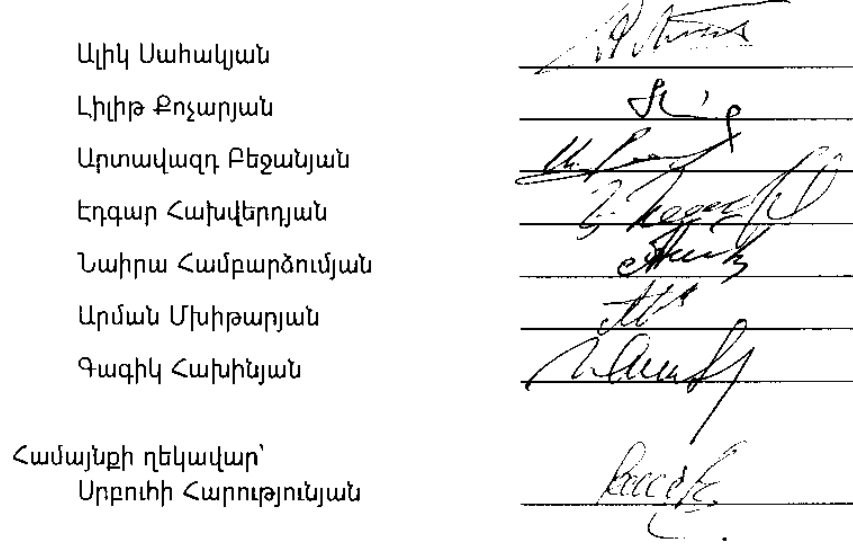 Ալիկ Սահակյան
Լիլիթ Քոչարյան
Արտավազդ Բեջանյան
Էդգար Հախվերդյան
Նաիրա Համբարձումյան
Արման Մխիթարյան
Գագիկ Հախինյան
Համայնքի ղեկավար՝
Սրբուհի Հարությունյան